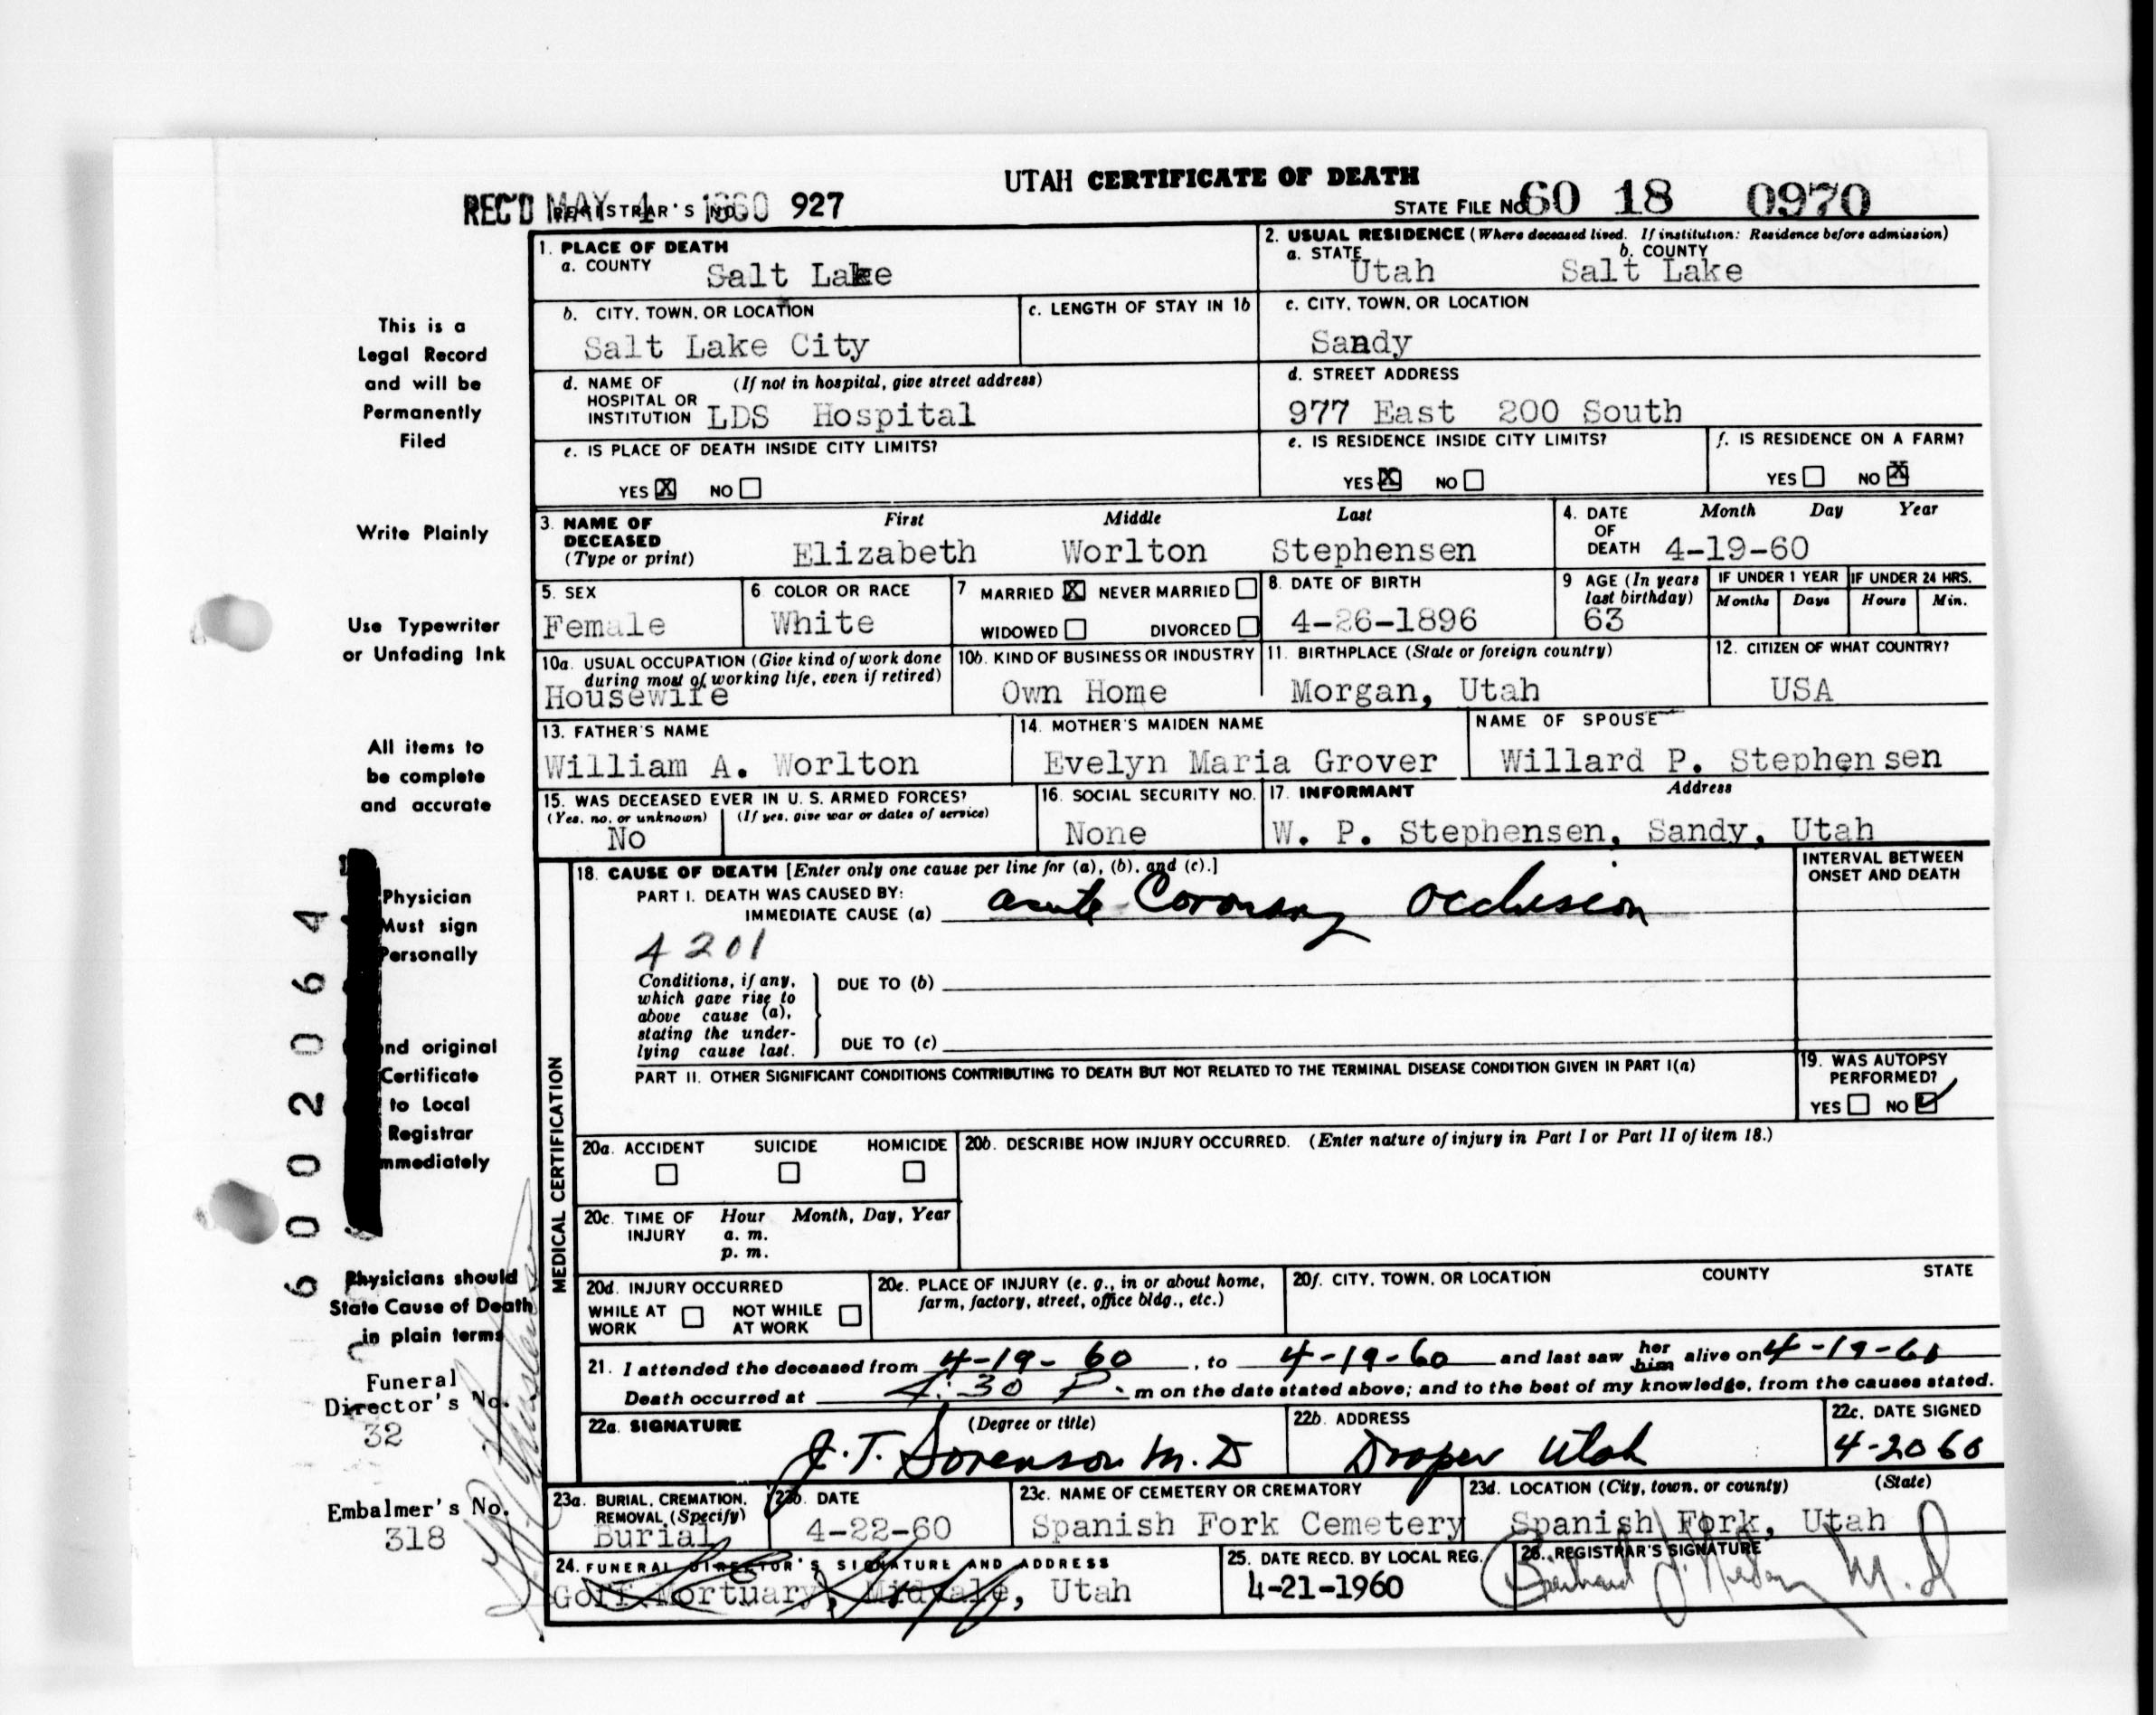 UTAH CERTIFICATE OF DEATH
REC'D MAY 4 1960 REGISTRAR'S NO. 927
STATE FILE NO. 60 18 0970
1. PLACE OF DEATH
a. COUNTY Salt Lake
2. USUAL RESIDENCE (Where deceased lived. If institution: Residence before admission)
a. STATE Utah b. COUNTY Salt Lake
b. CITY, TOWN, OR LOCATION Salt Lake City
c. LENGTH OF STAY IN 1b
c. CITY, TOWN, OR LOCATION Sandy
d. NAME OF HOSPITAL OR INSTITUTION (If not in hospital, give street address) LDS Hospital
d. STREET ADDRESS 977 East 200 South
e. IS PLACE OF DEATH INSIDE CITY LIMITS?
YES X NO
e. IS RESIDENCE INSIDE CITY LIMITS?
YES X NO
f. IS RESIDENCE ON A FARM?
YES NO X
3. NAME OF DECEASED (Type or print)
First Middle Last
Elizabeth Worlton Stephensen
4. DATE OF DEATH Month Day Year
4-19-60
5. SEX Female
6. COLOR OR RACE White
7 MARRIED X NEVER MARRIED
WIDOWED DIVORCED
8. DATE OF BIRTH 4-26-1896
9 AGE (In years last birthday) 63
IF UNDER 1 YEAR Months Days
IF UNDER 24 HRS. Hours Min.
10a. USUAL OCCUPATION (Give kind of work done during most of working life, even if retired)
Housewife
10b. KIND OF BUSINESS OR INDUSTRY Own Home
11. BIRTHPLACE (State or foreign country) Morgan, Utah
12. CITIZEN OF WHAT COUNTRY? USA
13. FATHER'S NAME William A. Worlton
14. MOTHER'S MAIDEN NAME Evelyn Maria Grover
NAME OF SPOUSE Willard P. Stephensen
15. WAS DECEASED EVER IN U. S. ARMED FORCES?
(Yes, no, or unknown) (If yes, give war or dates of service)
No
16. SOCIAL SECURITY NO. None
17. INFORMANT Address
W. P. Stephensen, Sandy, Utah
MEDICAL CERTIFICATION
18. CAUSE OF DEATH [Enter only one cause per line for (a), (b), and (c).]
PART I. DEATH WAS CAUSED BY:
IMMEDIATE CAUSE (a) acute Coronary Occlusion
INTERVAL BETWEEN ONSET AND DEATH
4201
Conditions, if any, which gave rise to above cause (a), stating the under-lying cause last.
DUE TO (b)
DUE TO (c)
PART II. OTHER SIGNIFICANT CONDITIONS CONTRIBUTING TO DEATH BUT NOT RELATED TO THE TERMINAL DISEASE CONDITION GIVEN IN PART I(a)
19. WAS AUTOPSY PERFORMED?
YES NO ✓
20a. ACCIDENT SUICIDE HOMICIDE
20b. DESCRIBE HOW INJURY OCCURRED. (Enter nature of injury in Part I or Part II of item 18.)
20c. TIME OF INJURY Hour Month, Day, Year
a. m.
p. m.
20d. INJURY OCCURRED
WHILE AT WORK NOT WHILE AT WORK
20e. PLACE OF INJURY (e. g., in or about home, farm, factory, street, office bldg., etc.)
20f. CITY, TOWN, OR LOCATION COUNTY STATE
21. I attended the deceased from 4-19-60, to 4-19-60 and last saw her him alive on 4-19-60
Death occurred at 4:30 P. m on the date stated above; and to the best of my knowledge, from the causes stated.
22a. SIGNATURE (Degree or title)
J. T. Sorenson M. D
22b. ADDRESS Draper Utah
22c. DATE SIGNED 4-20 60
23a. BURIAL, CREMATION, REMOVAL (Specify) Burial
23b. DATE 4-22-60
23c. NAME OF CEMETERY OR CREMATORY Spanish Fork Cemetery
23d. LOCATION (City, town, or county) (State)
Spanish Fork, Utah
24. FUNERAL DIRECTOR'S SIGNATURE AND ADDRESS
Goff Mortuary, Midvale, Utah
25. DATE RECD. BY LOCAL REG. 4-21-1960
26. REGISTRAR'S SIGNATURE
M. D
This is a
Legal Record
and will be
Permanently
Filed
Write Plainly
Use Typewriter
or Unfading Ink
All items to
be complete
and accurate
Physician
Must sign
Personally
nd original
Certificate
to Local
Registrar
mmediately
Physicians should
State Cause of Death
in plain terms
Funeral
Director's No.
32
Embalmer's No.
318
6002064